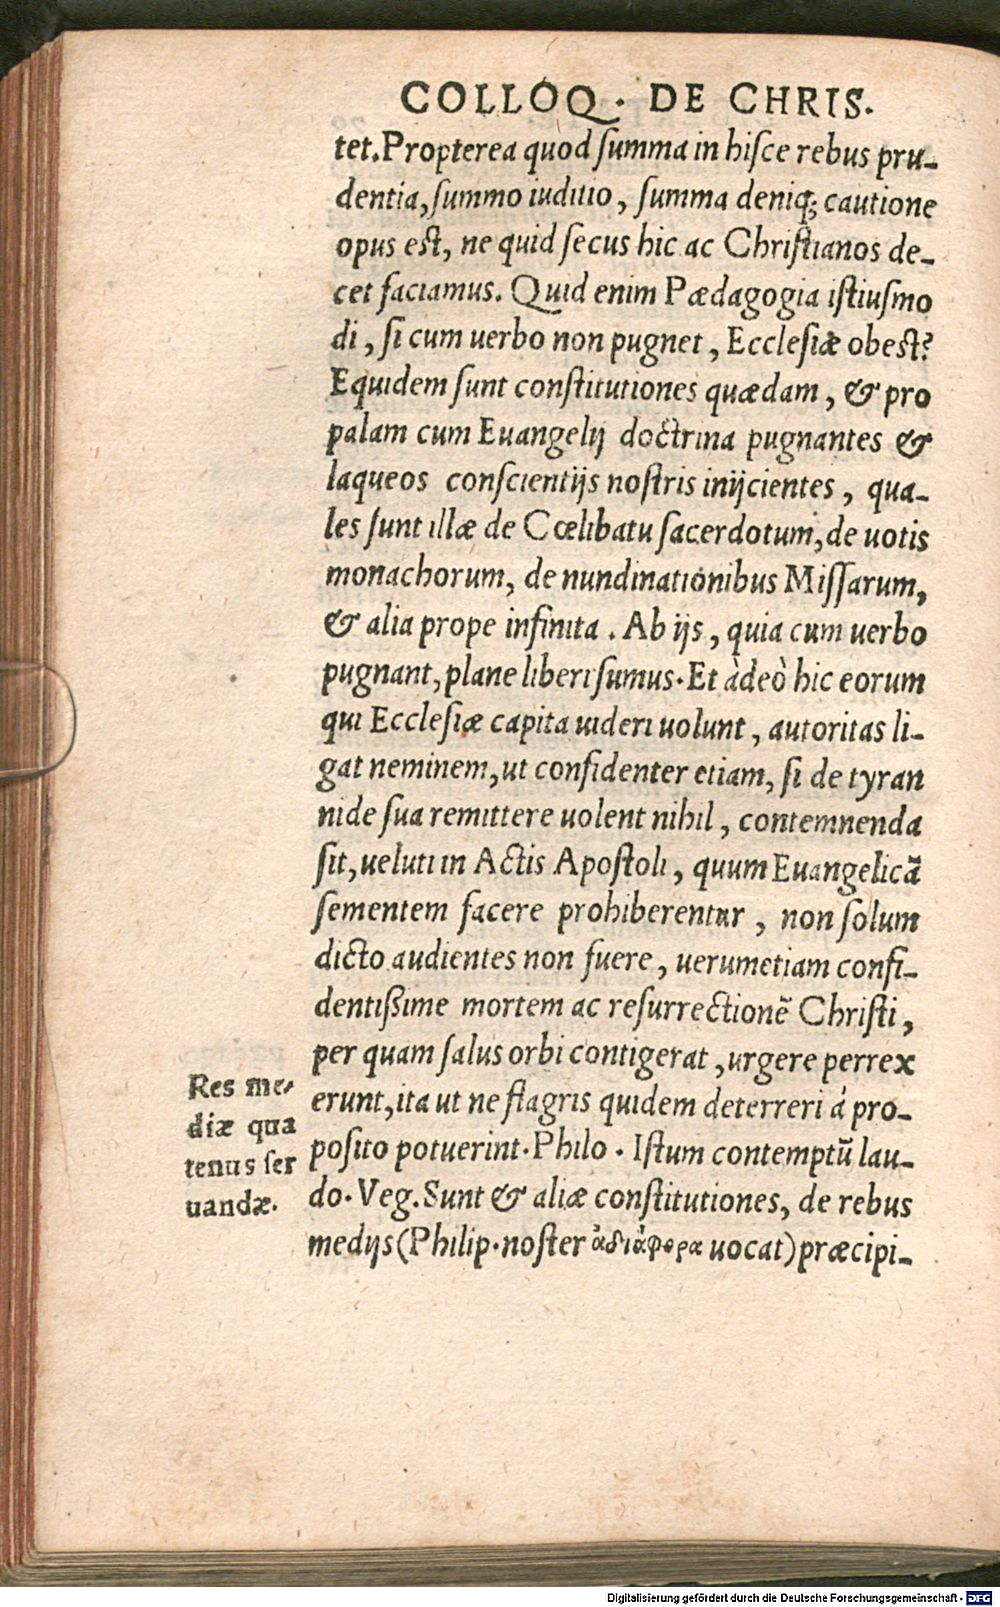 COLLOQ. DE CHRIS.
tet. Propterea quod ſumma in hiſce rebus pru-
dentia, ſummo iuditio, ſumma deniq; cautione
opus eſt, ne quid ſecus hic ac Chriſtianos de-
cet faciamus. Quid enim Pædagogia iſtiuſmo
di, ſi cum uerbo non pugnet, Eccleſiæ obeſt?
Equidem ſunt conſtitutiones quædam, & pro
palam cum Euangelij doctrina pugnantes &
laqueos conſcientijs noſtris inijcientes, qua-
les ſunt illæ de Cœlibatu ſacerdotum, de uotis
monachorum, de nundinationibus Miſſarum,
& alia prope infinita. Ab ijs, quia cum uerbo
pugnant, plane liberi ſumus. Et àdeò hic eorum
qui Eccleſiæ capita uideri uolunt, autoritas li-
gat neminem, ut confidenter etiam, ſi de tyran
nide ſua remittere uolent nihil, contemnenda
ſit, ueluti in Actis Apoſtoli, quum Euangelicã
ſementem facere prohiberentur, non ſolum
dicto audientes non fuere, uerumetiam confi-
dentißime mortem ac reſurrectionẽ Chriſti,
per quam ſalus orbi contigerat, urgere perrex
erunt, ita ut ne flagris quidem deterreri á pro-
poſito potuerint. Philo. Iſtum contemptũ lau-
do. Veg. Sunt & aliæ conſtitutiones, de rebus
medijs (Philip. noſter ἀδιάφορα uocat) præcipi-
Res me-
diæ qua
tenus ſer
uandæ.
Digitalisierung gefördert durch die Deutsche Forschungsgemeinschaft - DFG